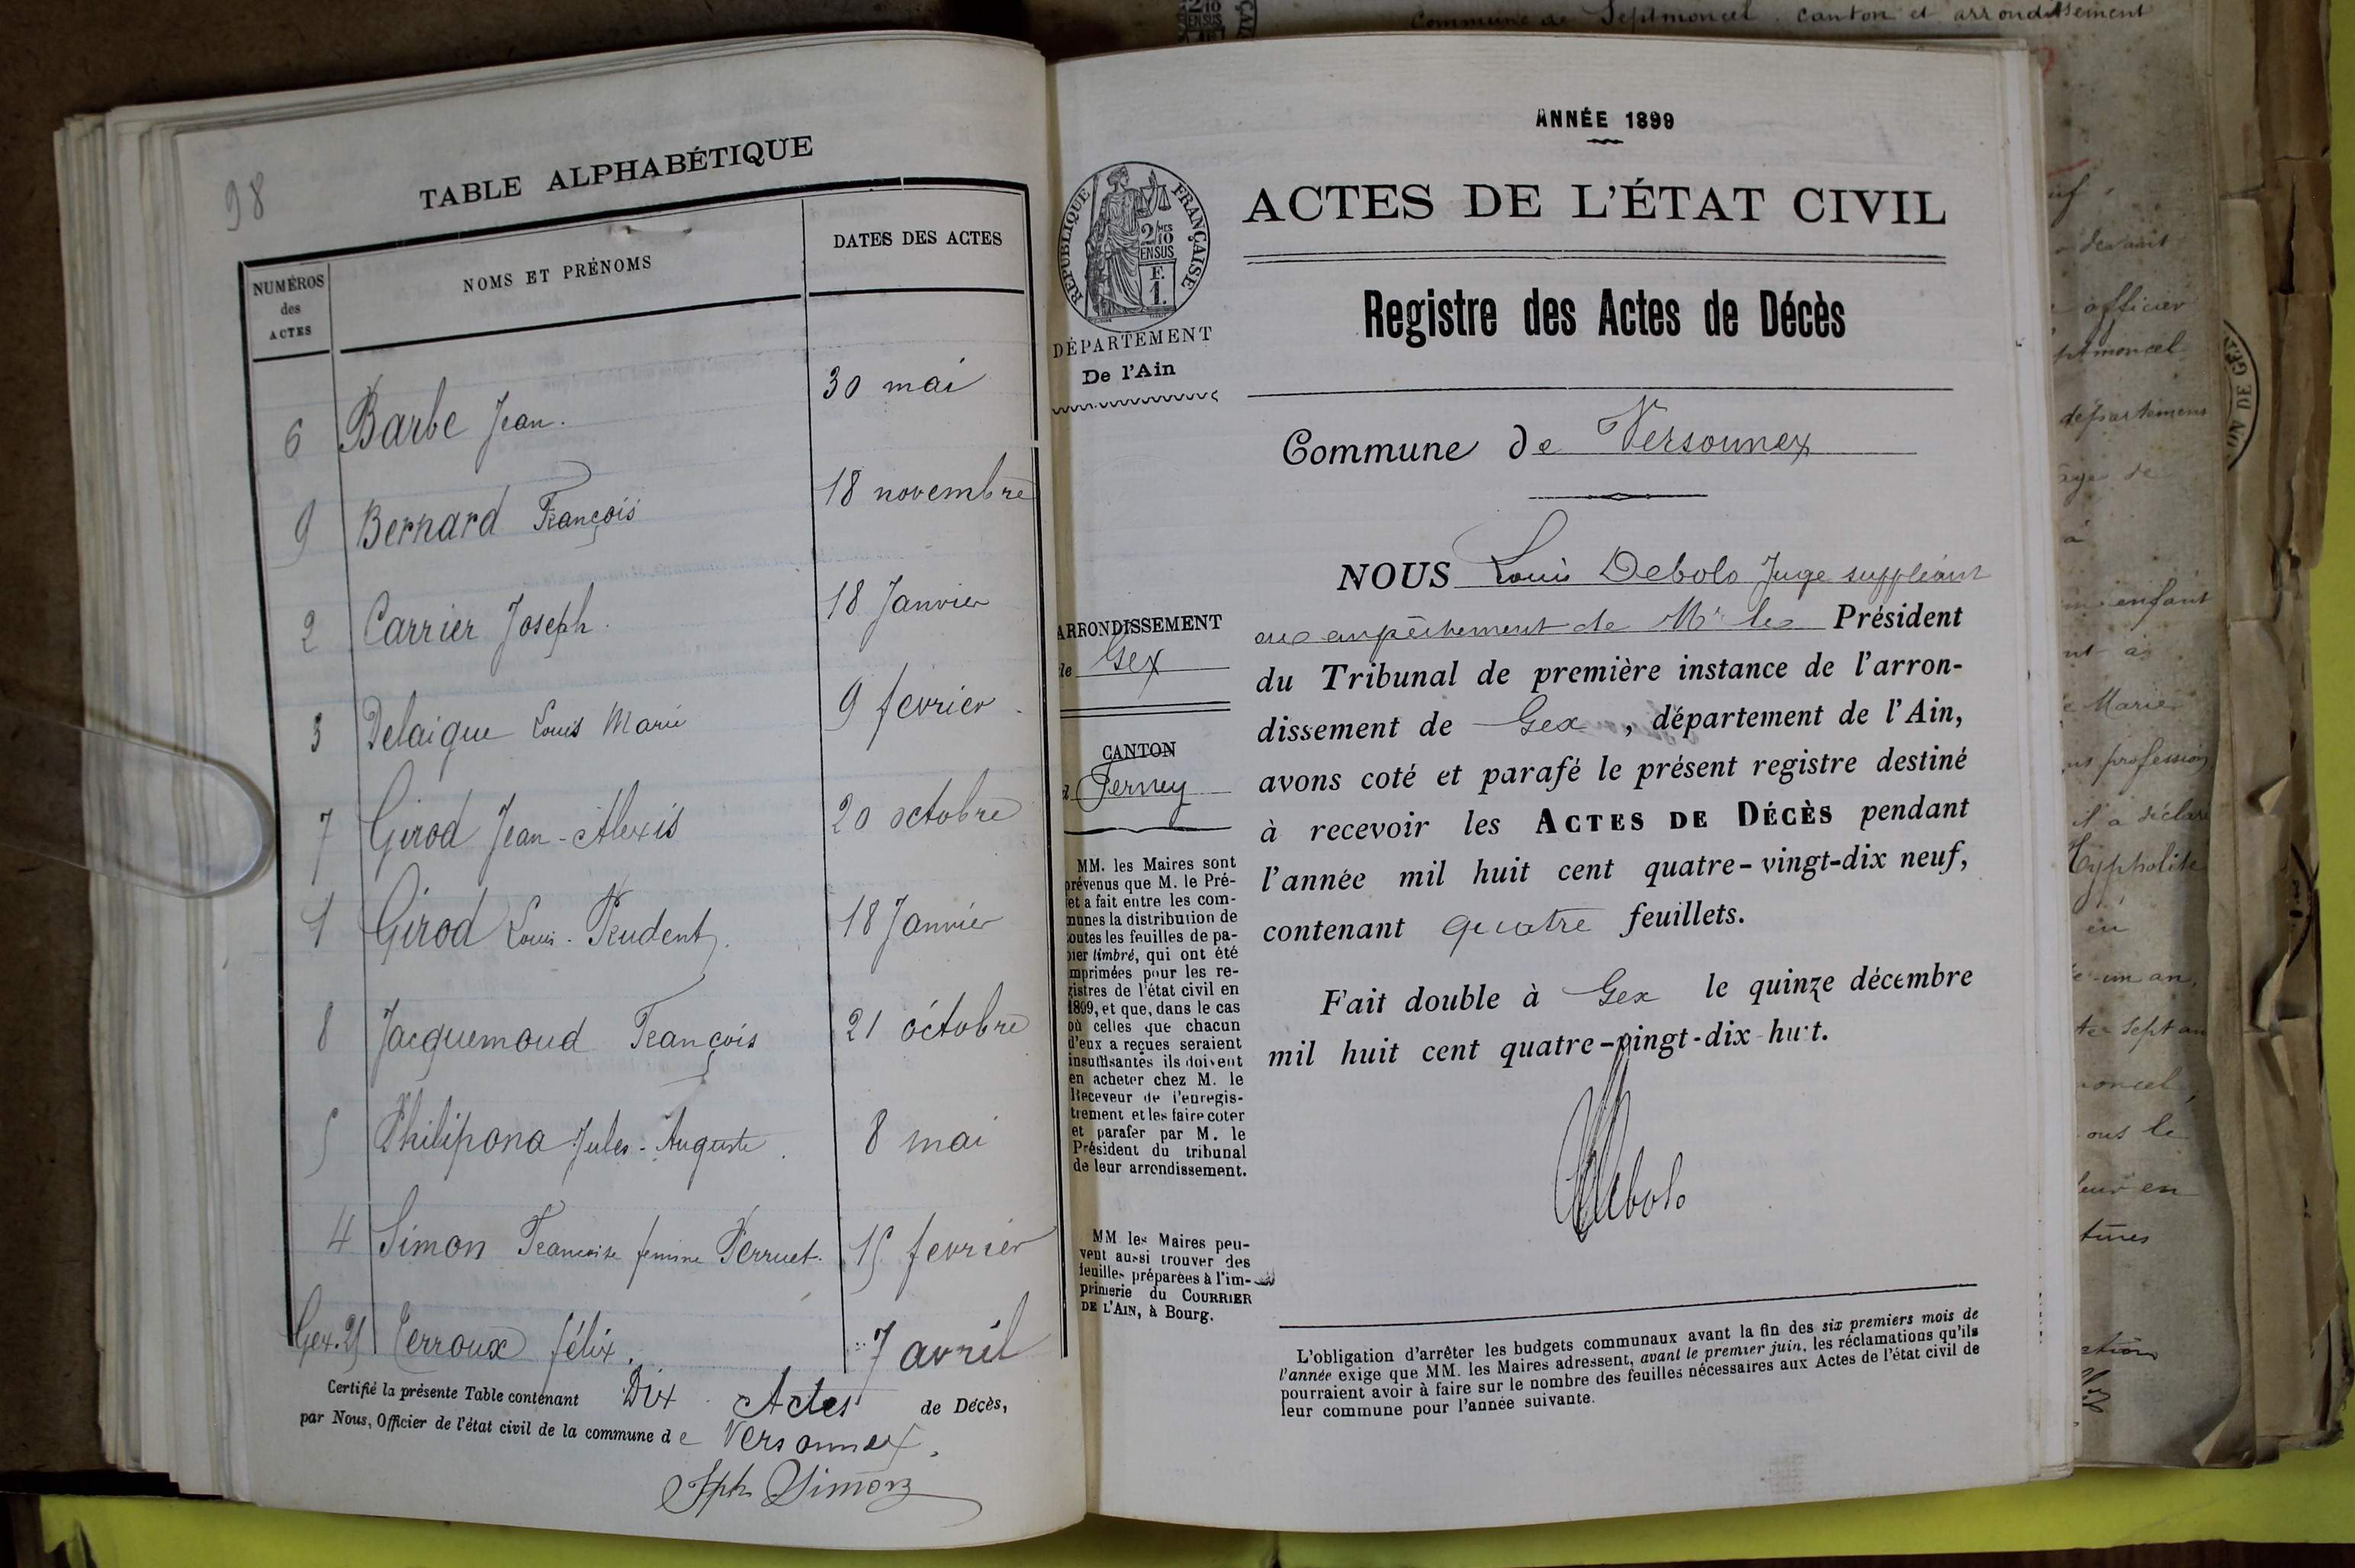 Commune de Septmoncel. canton et arrondissement
98
TABLE ALPHABÉTIQUE
NUMÉROS des ACTES
NOMS ET PRÉNOMS
DATES DES ACTES
6 Barbe Jean. 30 mai
9 Bernard François 18 novembre
2 Carrier Joseph. 18 Janvier
3 Delaigue Louis Marie 9 fevrier.
7 Girod Jean-Alexis 20 octobre
1 Girod Louis-Prudent. 18 Janvier
8 Jacquemoud François 21 octobre
5 Philipona Jules-Auguste. 8 mai
4 Simon Francoise femme Perruet. 15 fevrier
félix. 7 avril
Certifié la présente Table contenant Dix Actes de Décès,
par Nous, Officier de l'état civil de la commune de Versonnex.
Jph Simon
ANNÉE 1899
RÉPUBLIQUE FRANÇAISE
2/10
EN SUS
F.
1.
DÉPARTEMENT
De l'Ain
ACTES DE L'ÉTAT CIVIL
Registre des Actes de Décès
Commune de Versonnex
ARRONDISSEMENT
de Gex
CANTON
Ferney
MM. les Maires sont
prévenus que M. le Pré-
fet a fait entre les com-
munes la distribution de
toutes les feuilles de pa-
pier timbré, qui ont été
imprimées pour les re-
gistres de l'état civil en
1899, et que, dans le cas
où celles que chacun
d'eux a reçues seraient
insuffisantes ils doivent
en acheter chez M. le
Receveur de l'enregis-
trement et les faire coter
et parafer par M. le
Président du tribunal
de leur arrondissement.
MM les Maires peu-
vent aussi trouver des
feuilles préparées à l'im-
primerie du COURRIER
DE L'AIN, à Bourg.
NOUS Louis Debolo Juge suppléant
empêchement de Mr le Président
du Tribunal de première instance de l'arron-
dissement de Gex, département de l'Ain,
avons coté et parafé le présent registre destiné
à recevoir les ACTES DE DÉCÈS pendant
l'année mil huit cent quatre-vingt-dix neuf,
contenant quatre feuillets.
Fait double à Gex le quinze décembre
mil huit cent quatre-vingt-dix-huit.
Debolo
L'obligation d'arrêter les budgets communaux avant la fin des six premiers mois de
l'année exige que MM. les Maires adressent, avant le premier juin, les réclamations qu'ils
pourraient avoir à faire sur le nombre des feuilles nécessaires aux Actes de l'état civil de
leur commune pour l'année suivante.
officier
département
âge de
à
enfant
Marie
profession
il a déclaré
Hyppolite
un an,
sept